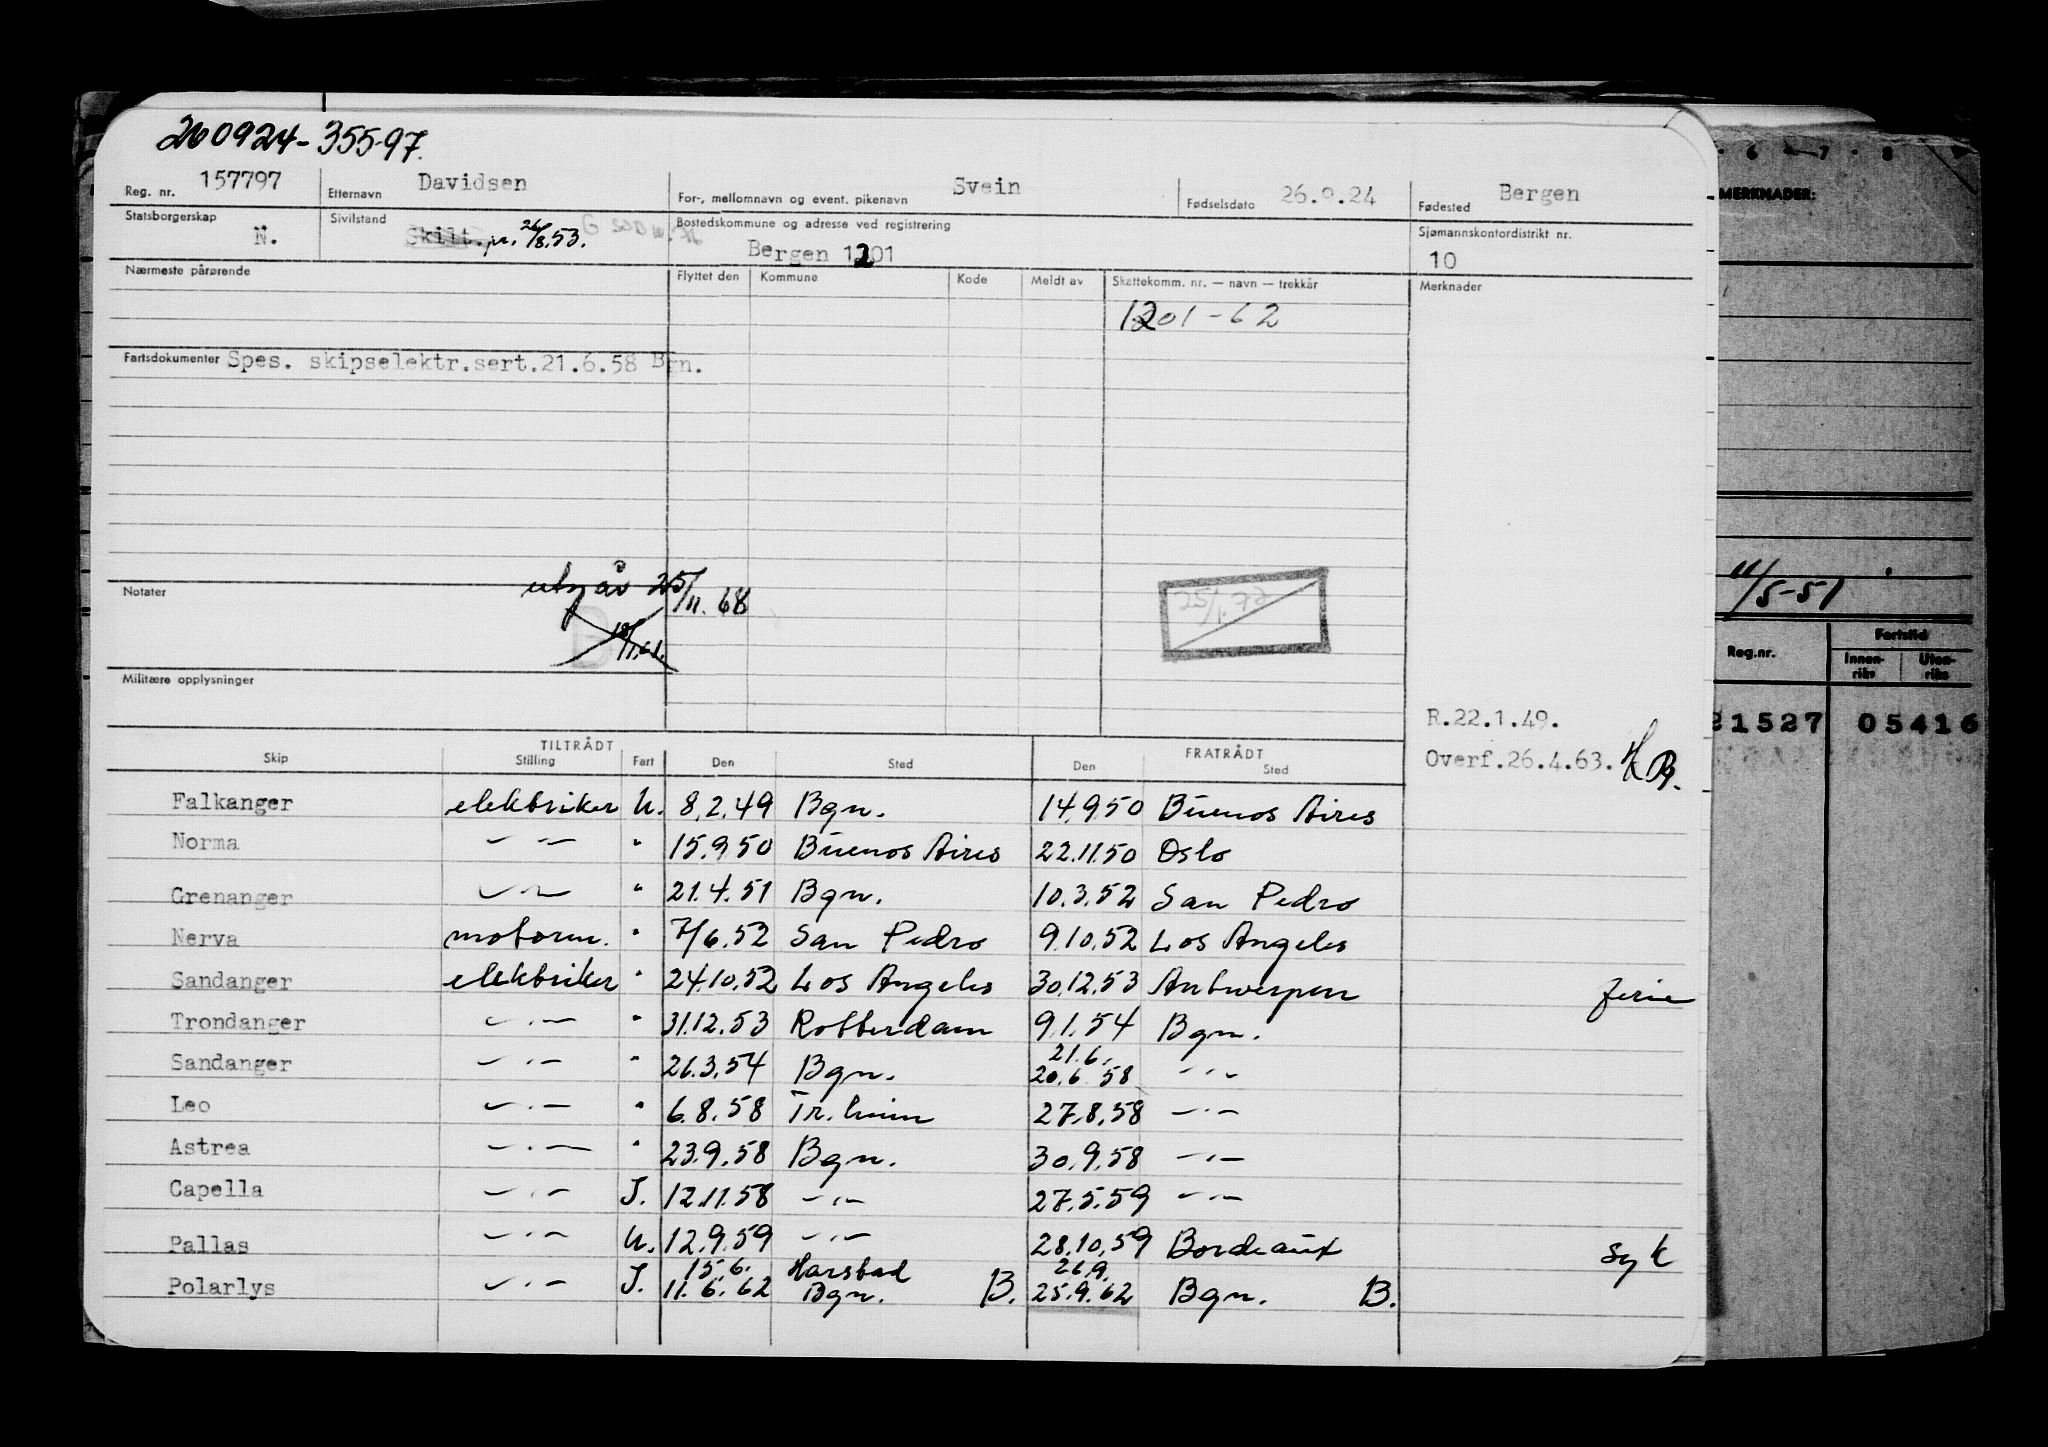 260924-35597.
Reg. nr. 157797 Etternavn Davidsen For-, mellomnavn og event. pikenavn Svein Fødselsdato 26.9.24 Fødested Bergen
Statsborgerskap N. Sivilstand Skilt. pr. 26/8.53. Bostedskommune og adresse ved registrering Bergen 1201 Sjømannskontordistrikt nr. 10
Nærmeste pårørende Flyttet den Kommune Kode Meldt av Skattekomm. nr. — navn — trekkår Merknader
1201-62
Fartsdokumenter Spes. skipselektr.sert.21.6.58 Bgn.
Notater utgår 25/11.68
18/1.61.
25/1.72
Militære opplysninger
R.22.1.49.
Overf.26.4.63.
TILTRÅDT FRATRÅDT
Skip Stilling Fart Den Sted Den Sted
Falkanger elektriker U. 8.2.49 Bgn. 14.9.50 Buenos Aires
Norma — " — " 15.9.50 Buenos Aires 22.11.50 Oslo
Grenanger — " — " 21.4.51 Bgn. 10.3.52 San Pedro
Nerva motorm. " 7/6.52 San Pedro 9.10.52 Los Angeles
Sandanger elektriker " 24.10.52 Los Angeles 30.12.53 Antwerpen ferie
Trondanger — " — " 31.12.53 Rotterdam 9.1.54 Bgn.
21.6.
Sandanger — " — " 26.3.54 Bgn. 20.6.58 — " —
Leo — " — " 6.8.58 Tr.heim 27.8.58 — " —
Astrea — " — " 23.9.58 Bgn. 30.9.58 — " —
Capella — " — I. 12.11.58 — " — 27.5.59 — " —
Pallas — " — U. 12.9.59 — " — 28.10.59 Bordeaux syk
15.6. Harstad 26.9.
Polarlys — " — I. 11.6.62 Bgn. B. 25.9.62 Bgn. B.
6 7 8
MERKNADER:
11/5-51
Reg.nr. Fartstid
Innenriks Utenriks
21527 05416